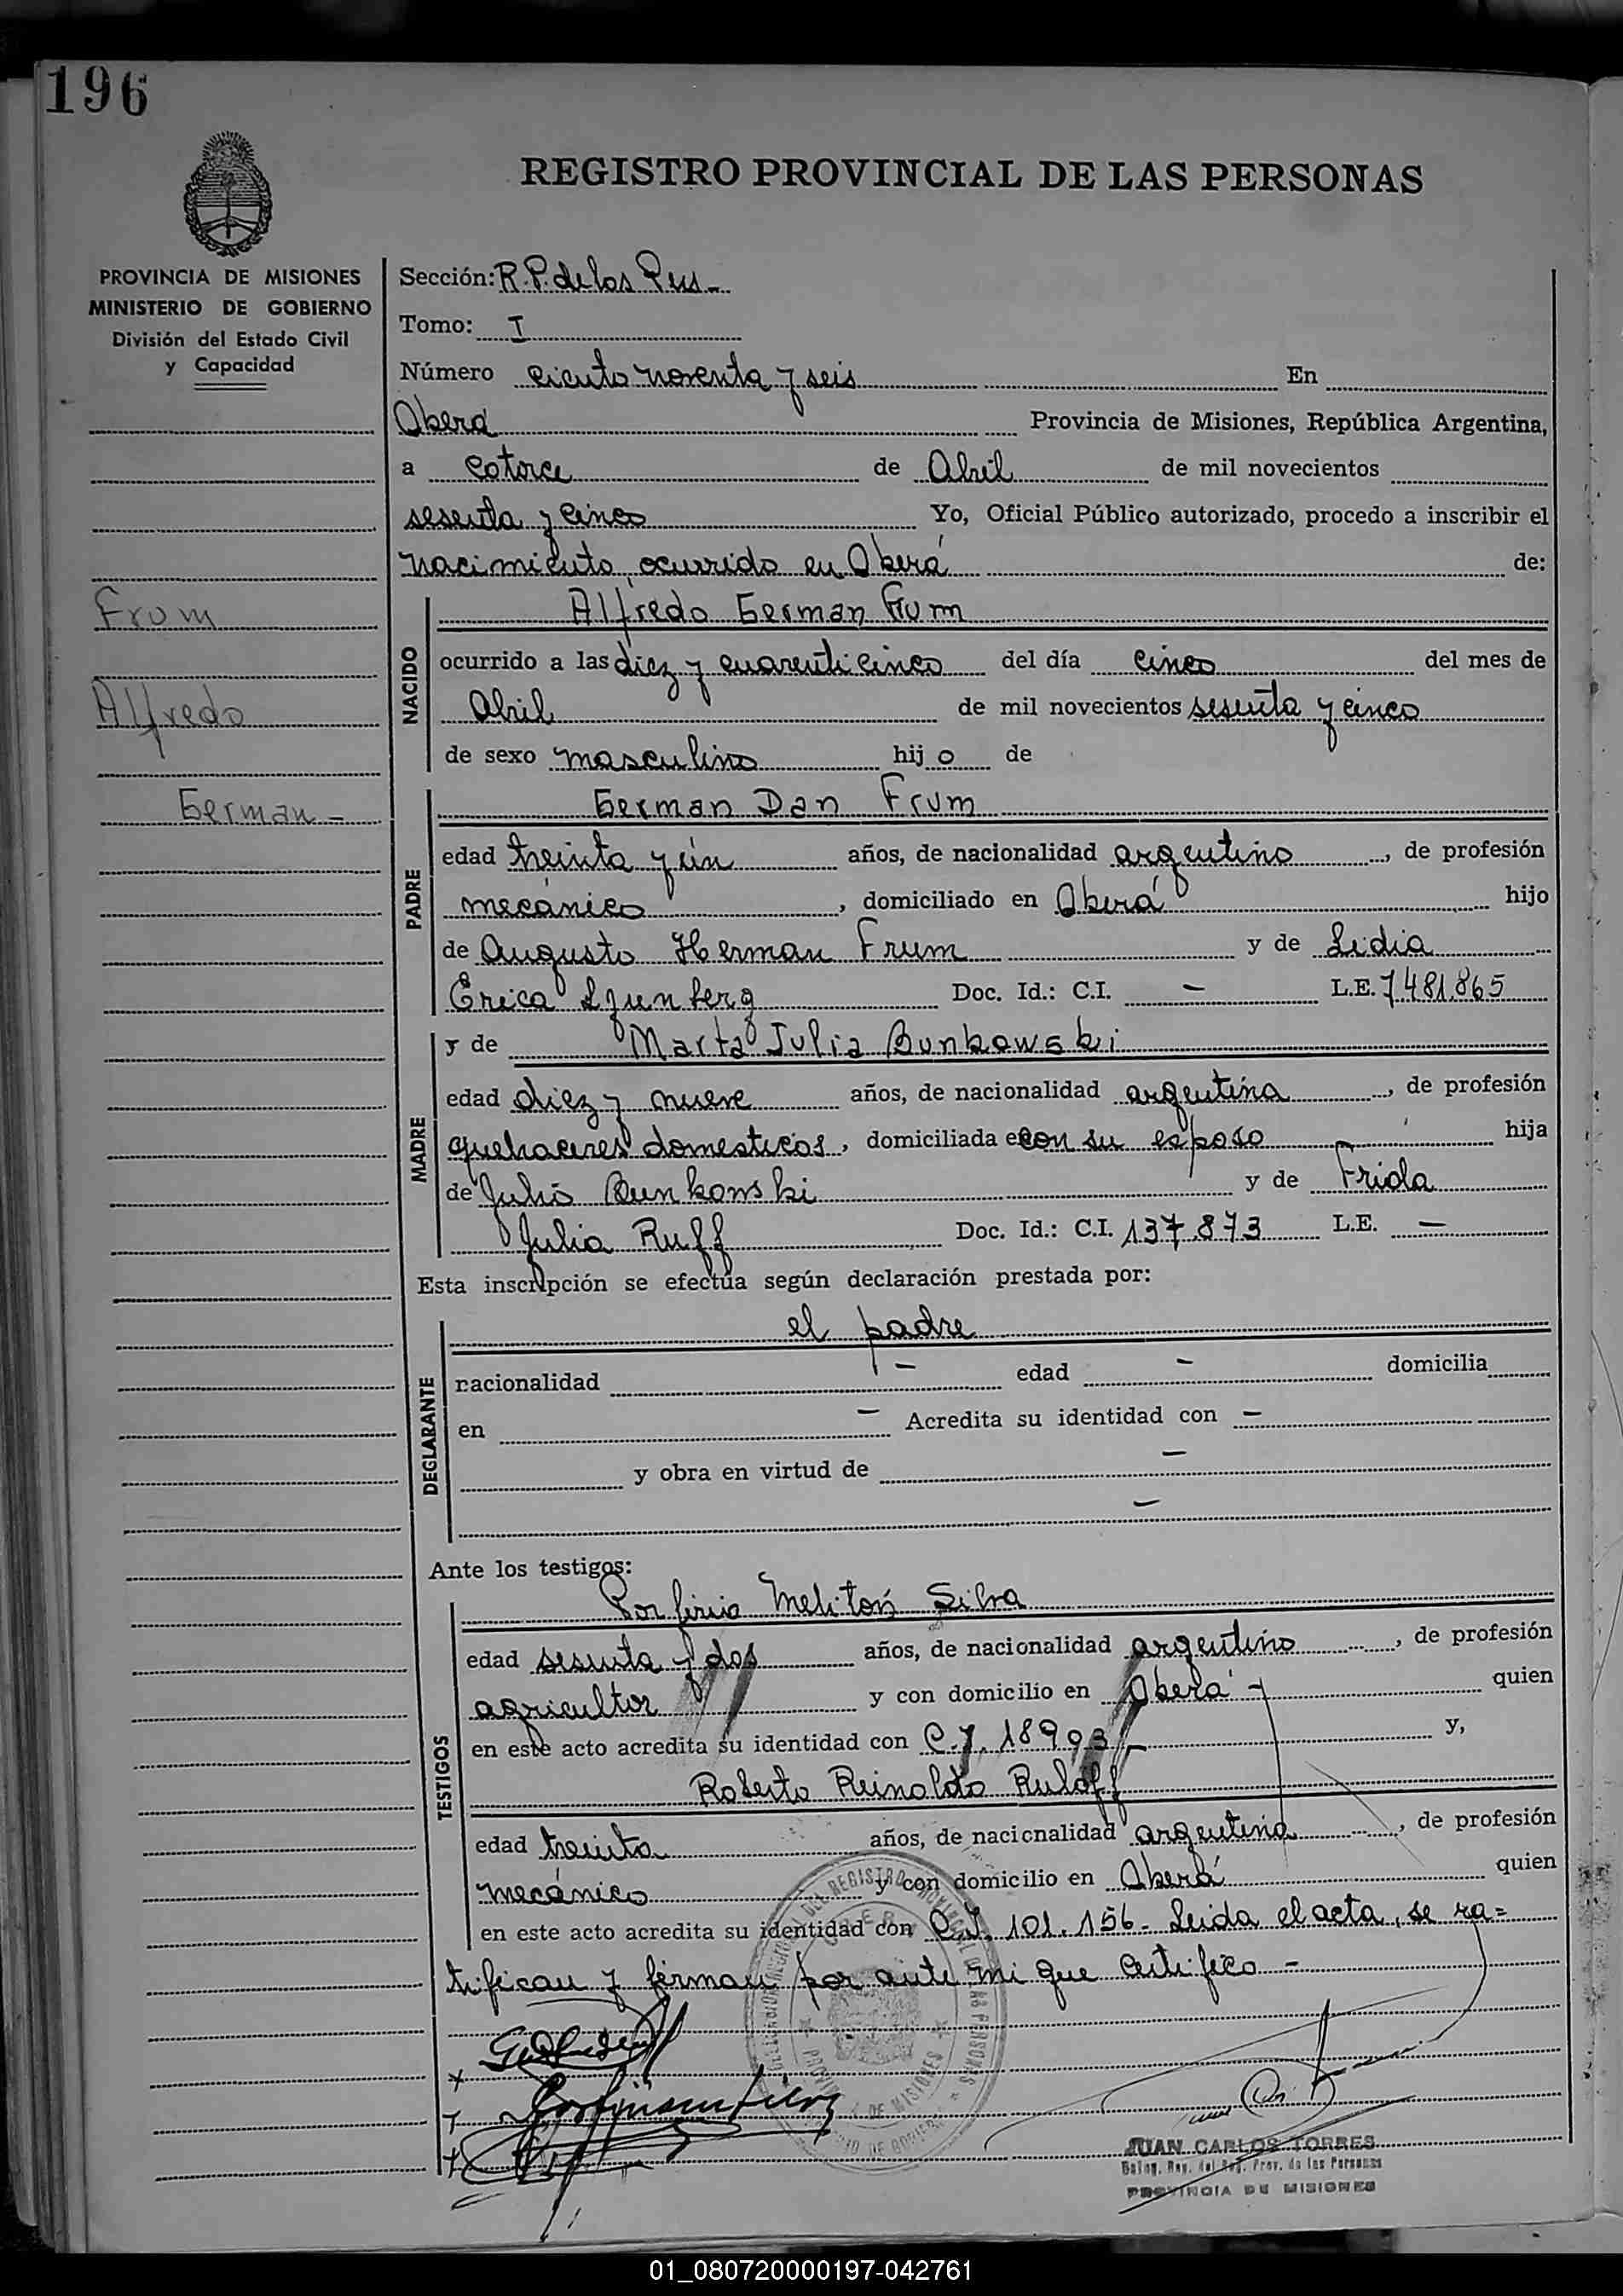 196
REGISTRO PROVINCIAL DE LAS PERSONAS
PROVINCIA DE MISIONES
MINISTERIO DE GOBIERNO
División del Estado Civil
y Capacidad
Frum
Alfredo
German -
Sección: R.P. de los Pers -
Tomo: I
Número ciento noventa y seis En
Oberá Provincia de Misiones, República Argentina,
a catorce de Abril de mil novecientos
sesenta y cinco Yo, Oficial Público autorizado, procedo a inscribir el
nacimiento ocurrido en Oberá de:
NACIDO
Alfredo German Frum
ocurrido a las diez y cuarenticinco del día cinco del mes de
Abril de mil novecientos sesenta y cinco
de sexo masculino hijo de
PADRE
German Dan Frum
edad treinta y un años, de nacionalidad argentino, de profesión
mecánico, domiciliado en Oberá hijo
de Augusto Herman Frum y de Lidia
Erica Doc. Id.: C.I. - L.E. 7481.865
y de Marta Julia Bunkowski
MADRE
edad diez y nueve años, de nacionalidad argentina, de profesión
quehaceres domesticos, domiciliada e con su esposo hija
de Julio Bunkowski y de Frida
Julia Ruff Doc. Id.: C.I. 137.873 L.E. -
Esta inscripción se efectúa según declaración prestada por:
DECLARANTE
el padre
nacionalidad - edad - domicilia
en - Acredita su identidad con -
y obra en virtud de -
-
Ante los testigos:
TESTIGOS
Porfirio Melitón Silva
edad sesenta y dos años, de nacionalidad argentino, de profesión
agricultor y con domicilio en Oberá - quien
en este acto acredita su identidad con C.I. 18903 - y,
Roberto Reinoldo Ruloff
edad treinta años, de nacionalidad argentina, de profesión
mecánico y con domicilio en Oberá quien
en este acto acredita su identidad con C.I. 101.156 - Leida el acta, se ra=
tifican y firman por ante mi que certifico -
JUAN CARLOS TORRES
Deleg. Rep. del Reg. Prov. de las Personas
PROVINCIA DE MISIONES
01_080720000197-042761